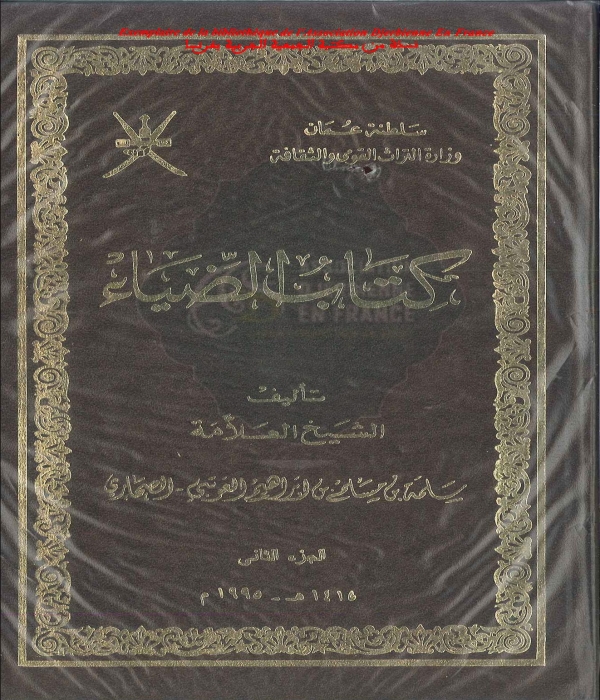 Exemplaire de la bibliothèque de l'Association Djerbienne En France
نسخة من مكتبة الجمعية الجربية بفرنسا
سلطنة عُمان
وزارة التراث القومي والثقافة
كتاب الضّياء
EN FRANCE
تأليف
الشيخ العلاّمة
سلمة بن مسلم بن ابراهيم العوتبي - الصحاري
الجزء الثاني
١٤١٥ هـ - ١٩٩٥ م